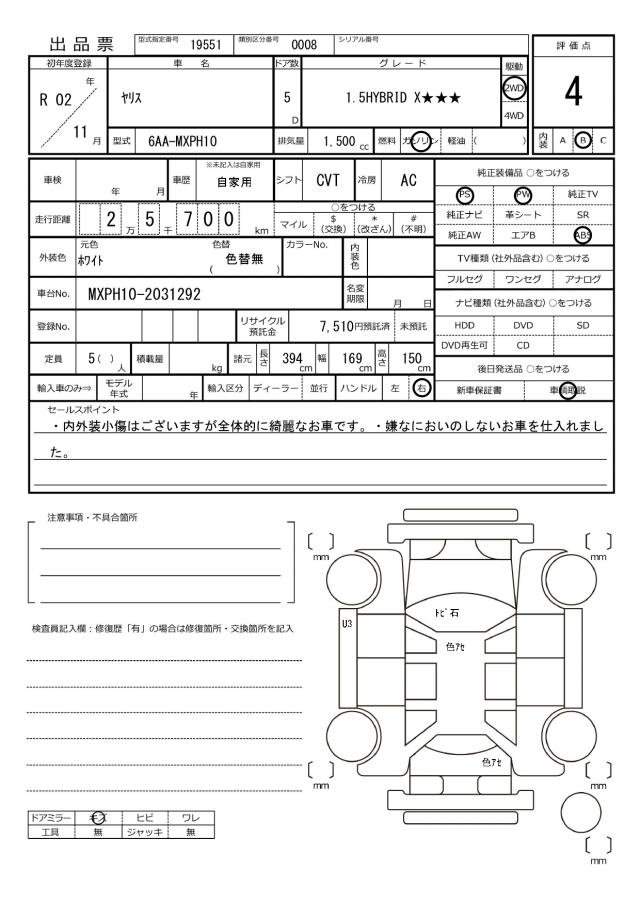 出品票 型式指定番号 19551 類別区分番号 0008 シリアル番号
評価点
4
内装 A B C
初年度登録 車名 ドア数 グレード 駆動
R 02 年 11 月 ﾔﾘｽ 5 D 1.5HYBRID X★★★ 2WD 4WD
型式 6AA-MXPH10 排気量 1,500 cc 燃料 ガソリン 軽油 ( )
車検 年 月 車歴 ※未記入は自家用 自家用 シフト CVT 冷房 AC
走行距離 2 万 5 千 7 0 0 km ○をつける
マイル $ (交換) * (改ざん) # (不明)
外装色 元色 ﾎﾜｲﾄ 色替 ( 色替無 ) カラーNo. 内装色
車台No. MXPH10-2031292 名変期限 月 日
登録No. リサイクル預託金 7,510円預託済 未預託
定員 5( ) 人 積載量 kg 諸元 長さ 394 cm 幅 169 cm 高さ 150 cm
輸入車のみ⇒ モデル年式 年 輸入区分 ディーラー 並行 ハンドル 左 右
純正装備品 ○をつける
PS PW 純正TV
純正ナビ 革シート SR
純正AW エアB ABS
TV種類 (社外品含む) ○をつける
フルセグ ワンセグ アナログ
ナビ種類 (社外品含む) ○をつける
HDD DVD SD
DVD再生可 CD
後日発送品 ○をつける
新車保証書 車輌取説
セールスポイント
・内外装小傷はございますが全体的に綺麗なお車です。・嫌なにおいのしないお車を仕入れまし
た。
注意事項・不具合箇所
検査員記入欄：修復歴「有」の場合は修復箇所・交換箇所を記入
〔 〕 mm 〔 〕 mm
ﾄﾋﾞ石
U3
色ｱｾ
色ｱｾ
〔 〕 mm 〔 〕 mm
〔 〕 mm
ドアミラー キズ ヒビ ワレ
工具 無 ジャッキ 無